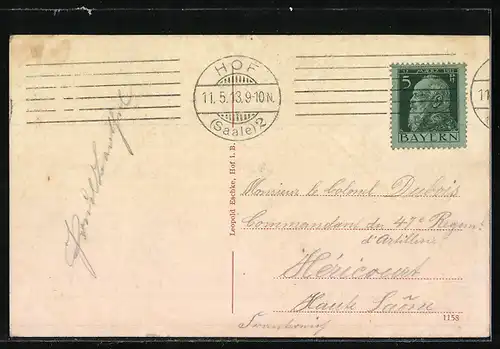 HOF
11.5.13.9-10N.
(Saale) 2
5
BAYERN
11
Leopold Eschke, Hof i. B.
Monsieur le Colonel Dubois
Commandant du 47e Regim.
d'Artillerie
Héricourt
Haute Saône
1158